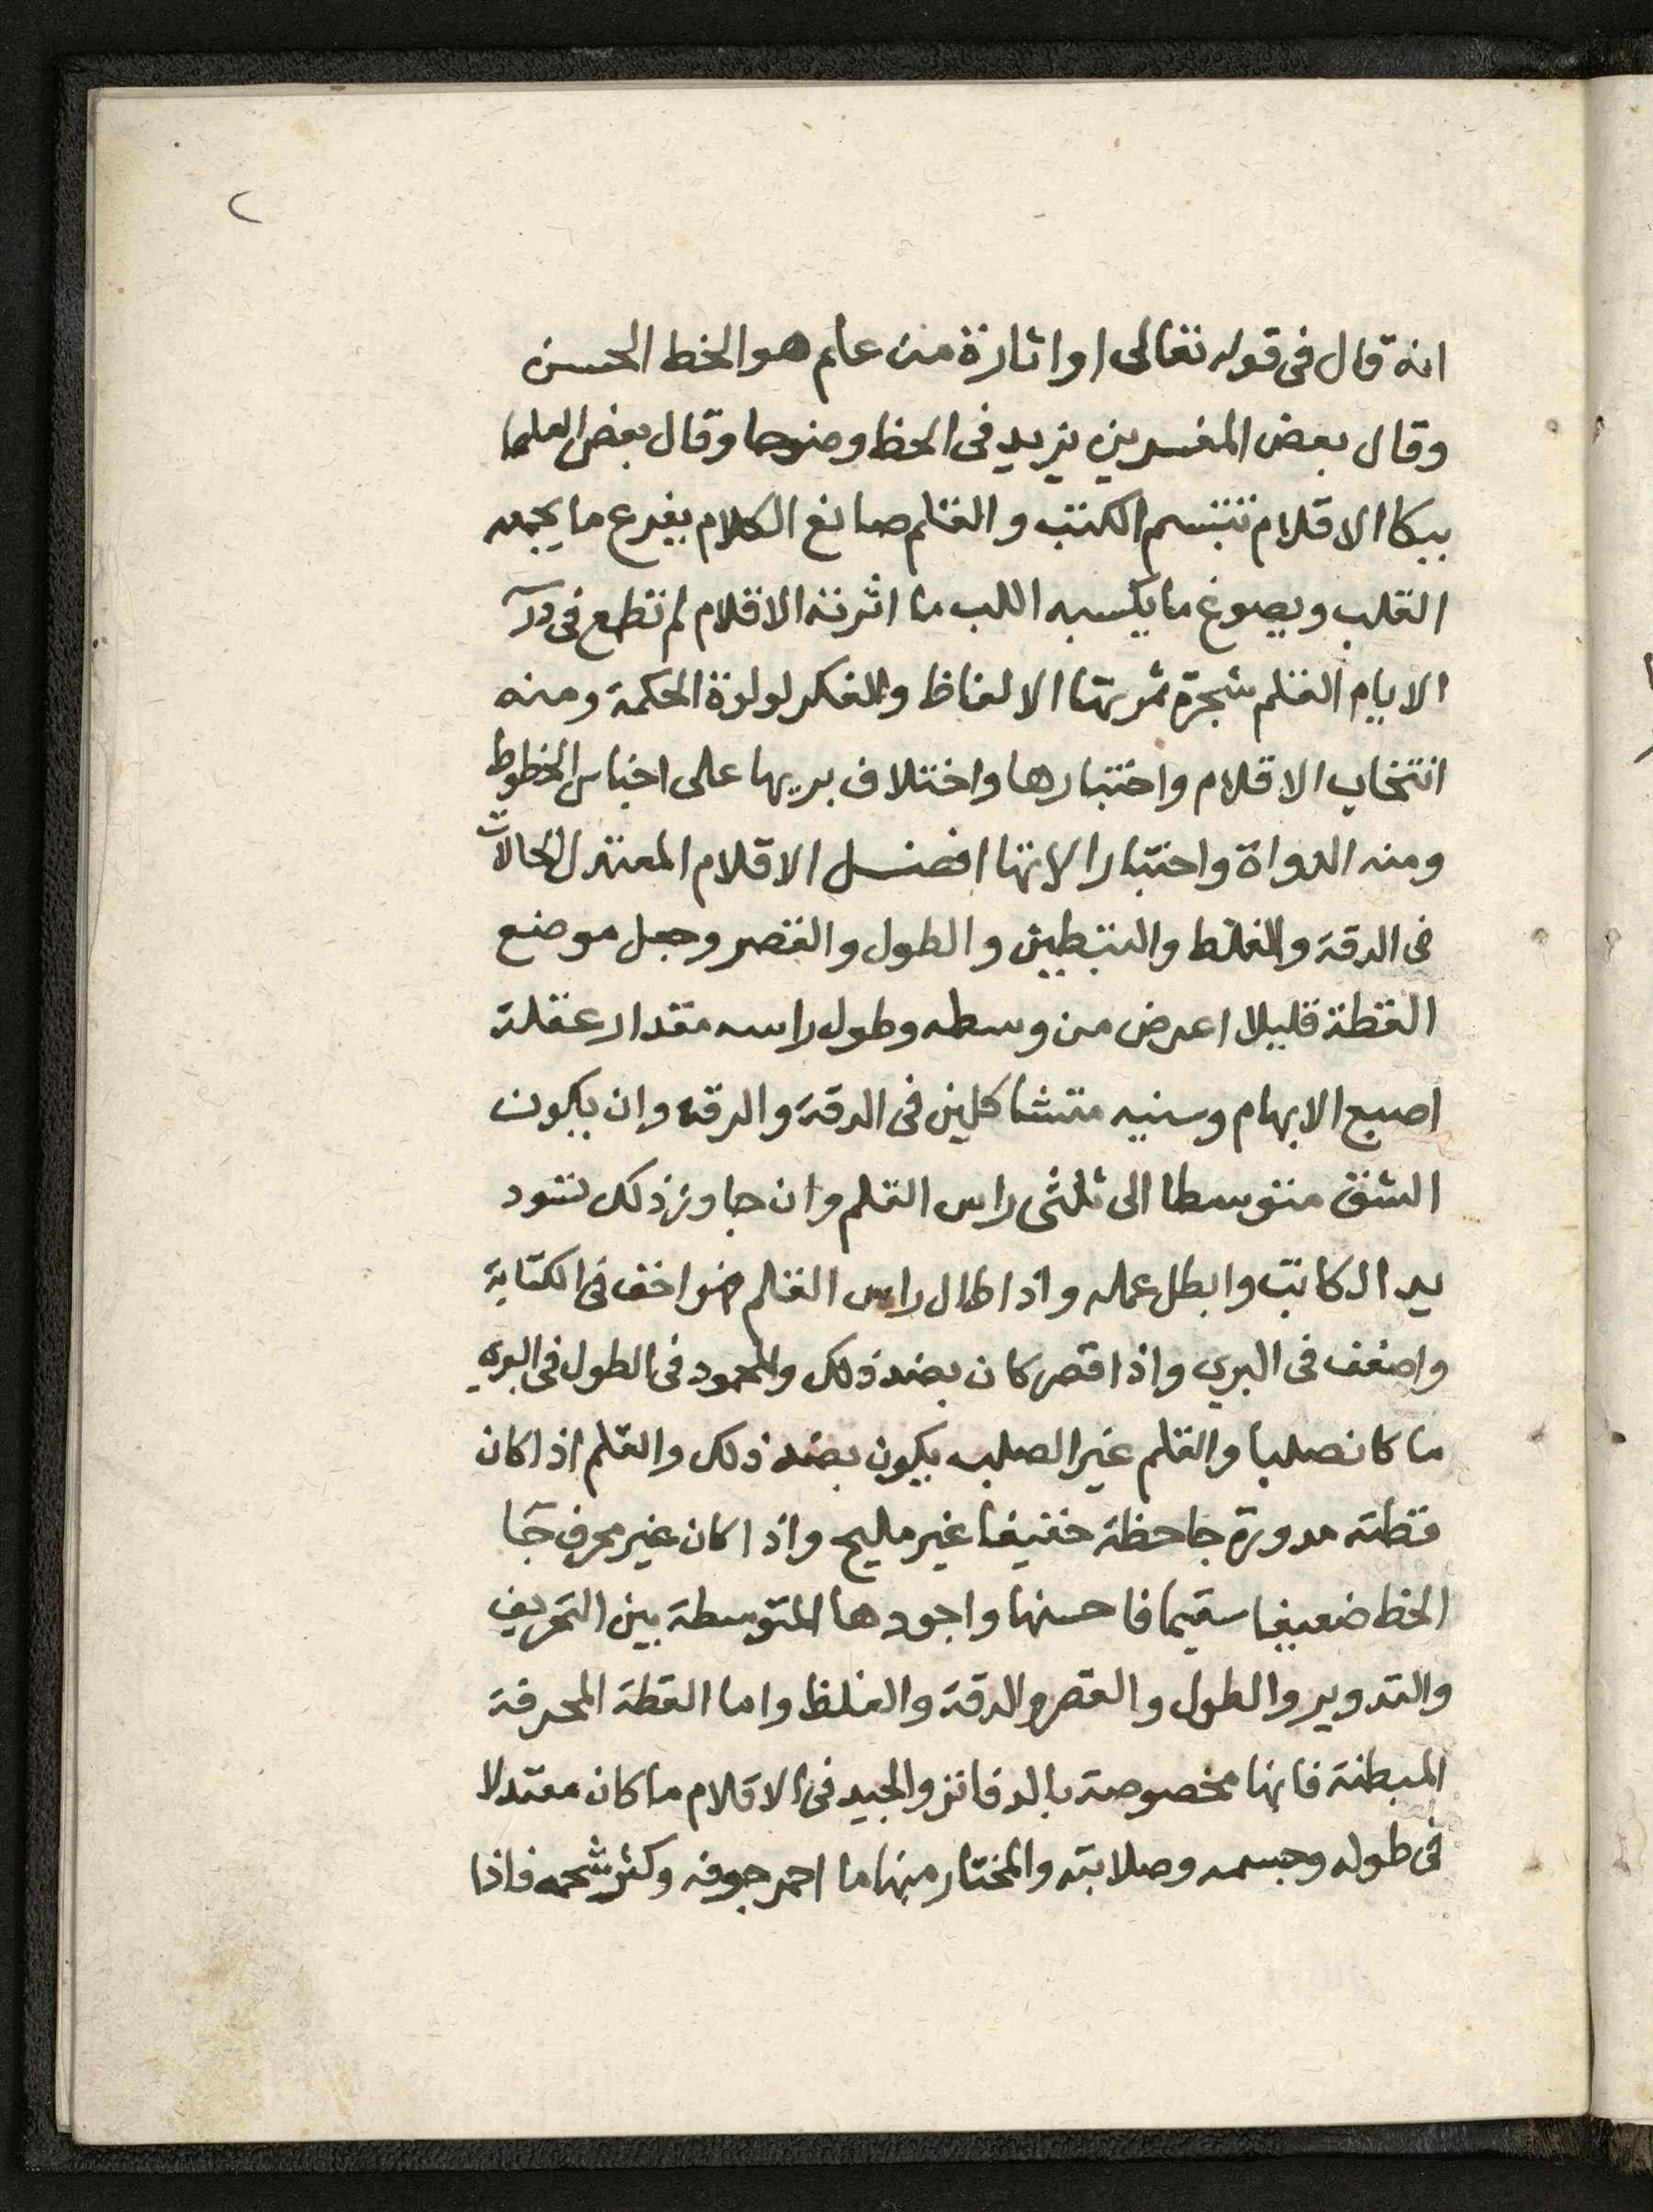 ٢
انه قال فى قوله تعالى او اثارة من علم هو الخط الحسن
وقال بعض المفسرين يزيد فى الحظ وضوحا وقال بعض العلما
ببكا الاقلام تتبسم الكتب والقلم صانغ الكلام يفرغ ما يجمعه
القلب ويصوغ ما يكسبه اللب ما اثرته الاقلام لم تطمع فى درّ
الايام القلم شجرة ثمرتها الالفاظ والفكر لولوة الحكمة ومنه
انتخاب الاقلام واختبارها واختلاف بريها على اجناس الخطوط
ومنه الدواة واختبار الاتها افضل الاقلام المعتدل الحالات
فى الدقة والغلظ والتبطين والطول والقصر وجعل موضع
القطة قليلا اعرض من وسطه وطول راسه مقدار عقلة
اصبع الابهام وسنيه متشاكلين فى الدقة والرقه وان يكون
الشق متوسطا الى ثلثى راس القلم وان جاوز ذلك
يد الكاتب وابطل عمله واذا طال راس القلم اخف فى الكتابة
واضعف فى البري واذا قصر كان بضد ذلك والمحمود فى الطول فى البري
ما كان صلبا والقلم غير الصلب يكون بضد ذلك والقلم اذا كان
قطته مدورة جا حظه خفيفا غير مليح واذا كان غير محرف جآ
الخظ ضعيفا سقيما فاحسنها واجودها المتوسطة بين التحريف
والتدوير والطول والقصر والدقة والغلظ واما القطة المحرفة
المبطنة فانها مخصوصة بالدفاتر والجيد فى الاقلام ما كان معتدلا
فى طوله وجسمه وصلابته والمختار منها ما احمر جوفه وكثر شحمه فاذا